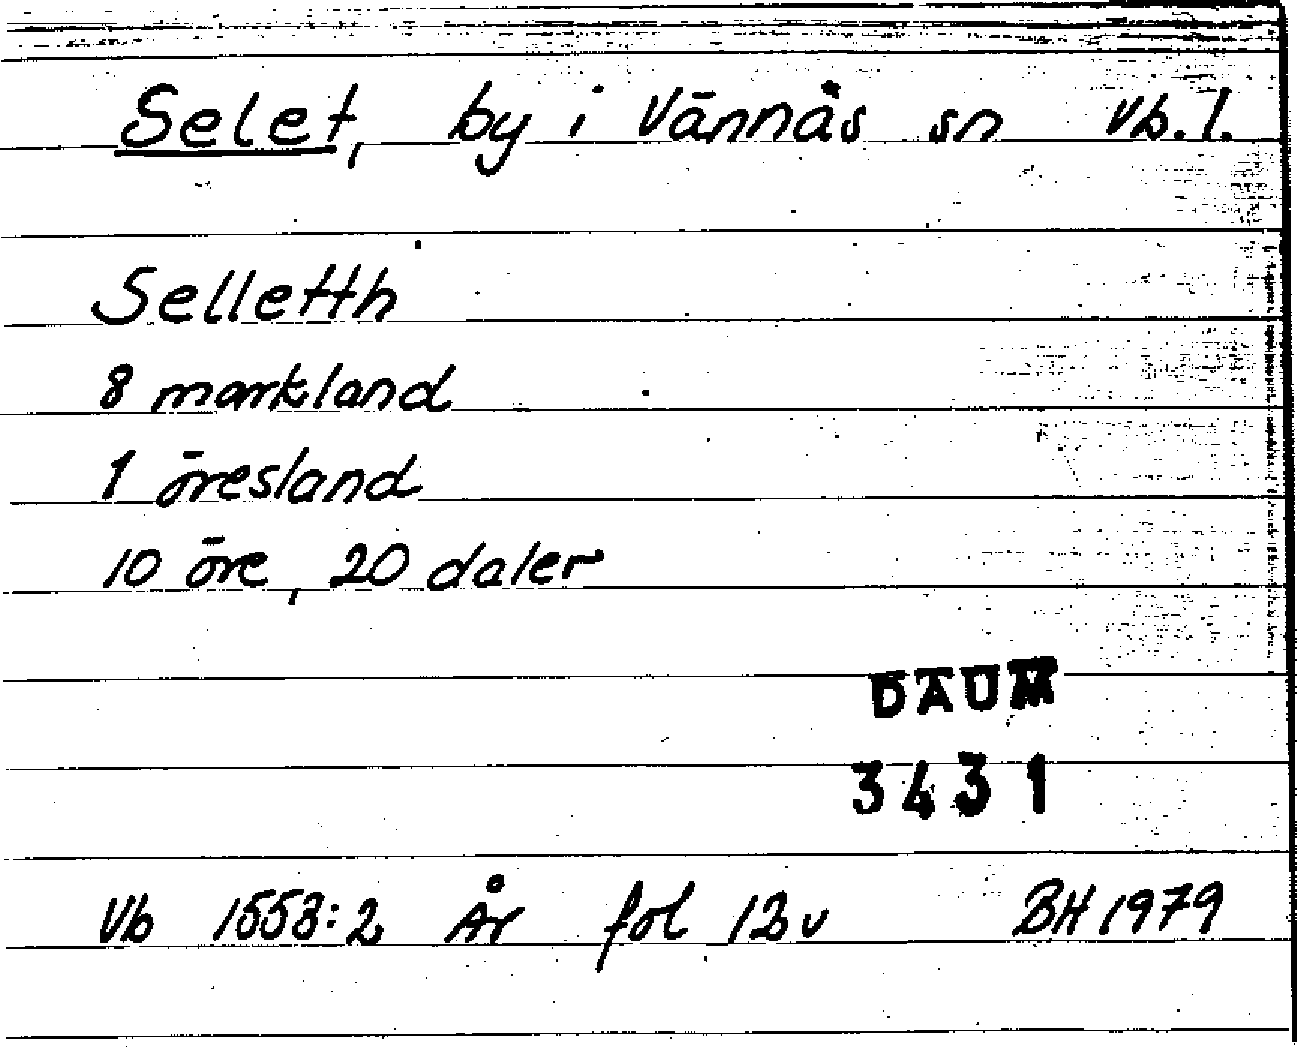 Selet, by i Vännäs sn Vb. l.
Selletth
8 markland
1 öresland
10 öre, 20 daler
DAUM
3431
Vb 1558:2 År fol 12v BH 1979